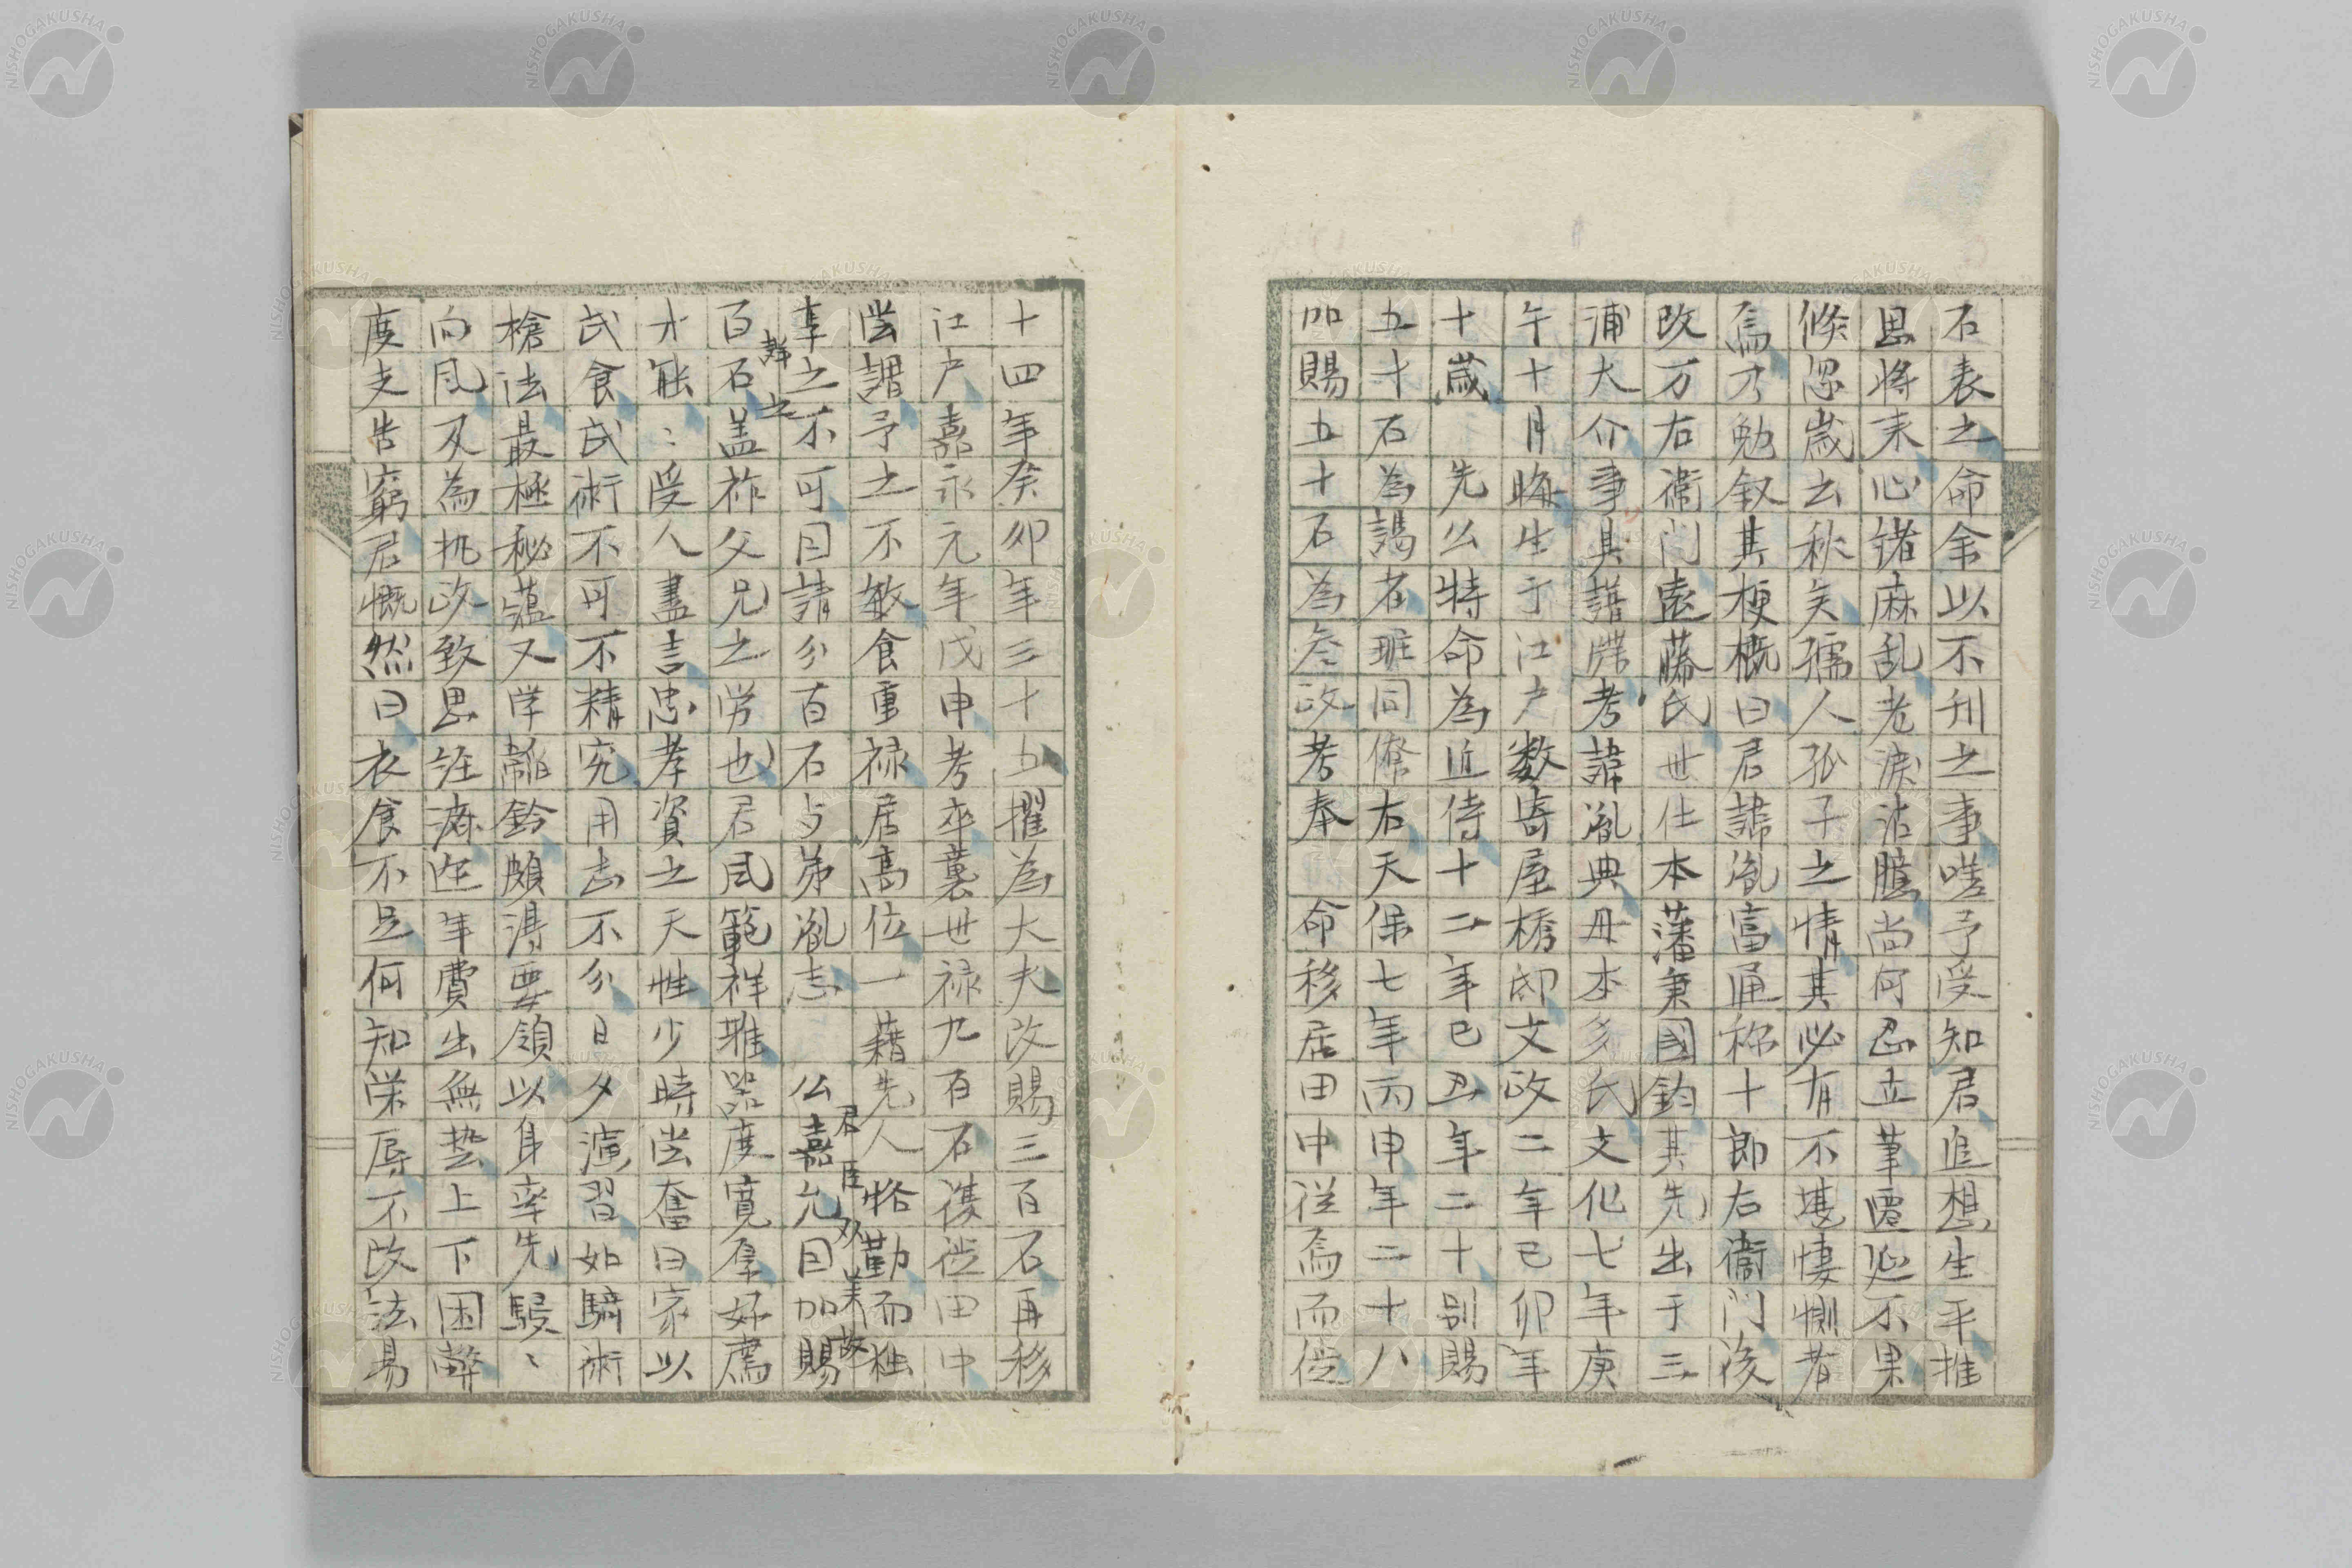 石表之命余以不刊之事嗟予受知君追想生平推
思将来心緒麻乱老淚沾臆尚何忍立筆遷延不果
倏忽歳去秋矣孺人孤子之情其必有不堪悽惻者
焉乃勉叙其梗概曰君諱胤富通称十郎右衛門後
改万右衛門遠藤氏世仕本藩秉國鈞其先出于三
浦大介事具譜牒考諱胤典母本多氏文化七年庚
午十月晦生于江戸数寄屋橋邸文政二年己卯年
十歳 先公特命為近侍十二年己丑年二十別賜
五十石為謁者班同僚右天保七年丙申年二十八
加賜五十石為参政考奉 命移居田中従焉而従
十四年癸卯年三十五擢為大夫改賜三百石再移
江戸嘉永元年戊申考卒襲世禄九百石復従田中
嘗謂予之不敏食重禄居高位一藉先人恪勤而独
享之不可因請分百石与弟胤志 公嘉允因加賜
辞之
君臣双美哉
百石蓋祚父兄之労也君風範祥雅器度寛厚好薦
才能〻受人盡言忠孝資之天性少時嘗奮曰家以
武食武術不可不精究用志不分日夕演習如騎術
槍法最極秘蘊又学韜鈐頗得要領以身率先駸〻
向風及為執政致思経済連年費出無芸上下困弊
度支告窮君慨然曰衣食不足何知栄辱不改法易